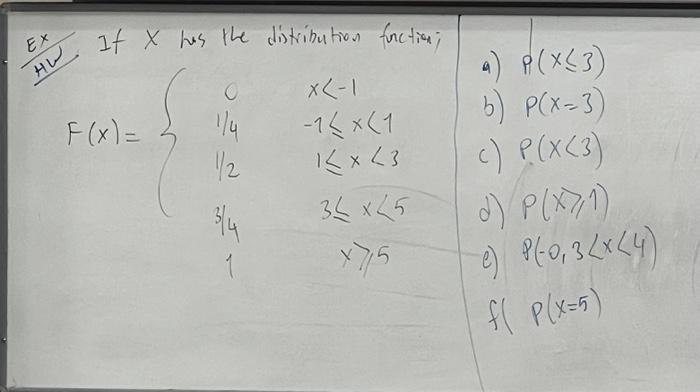 EX HW If X has the distribution function;
F(x) = {
0 x<-1
1/4 -1≤x<1
1/2 1≤x<3
3/4 3≤x<5
1 x≥5
a) P(X≤3)
b) P(X=3)
c) P(X<3)
d) P(X≥1)
e) P(-0,3<X<4)
f( P(X=5)